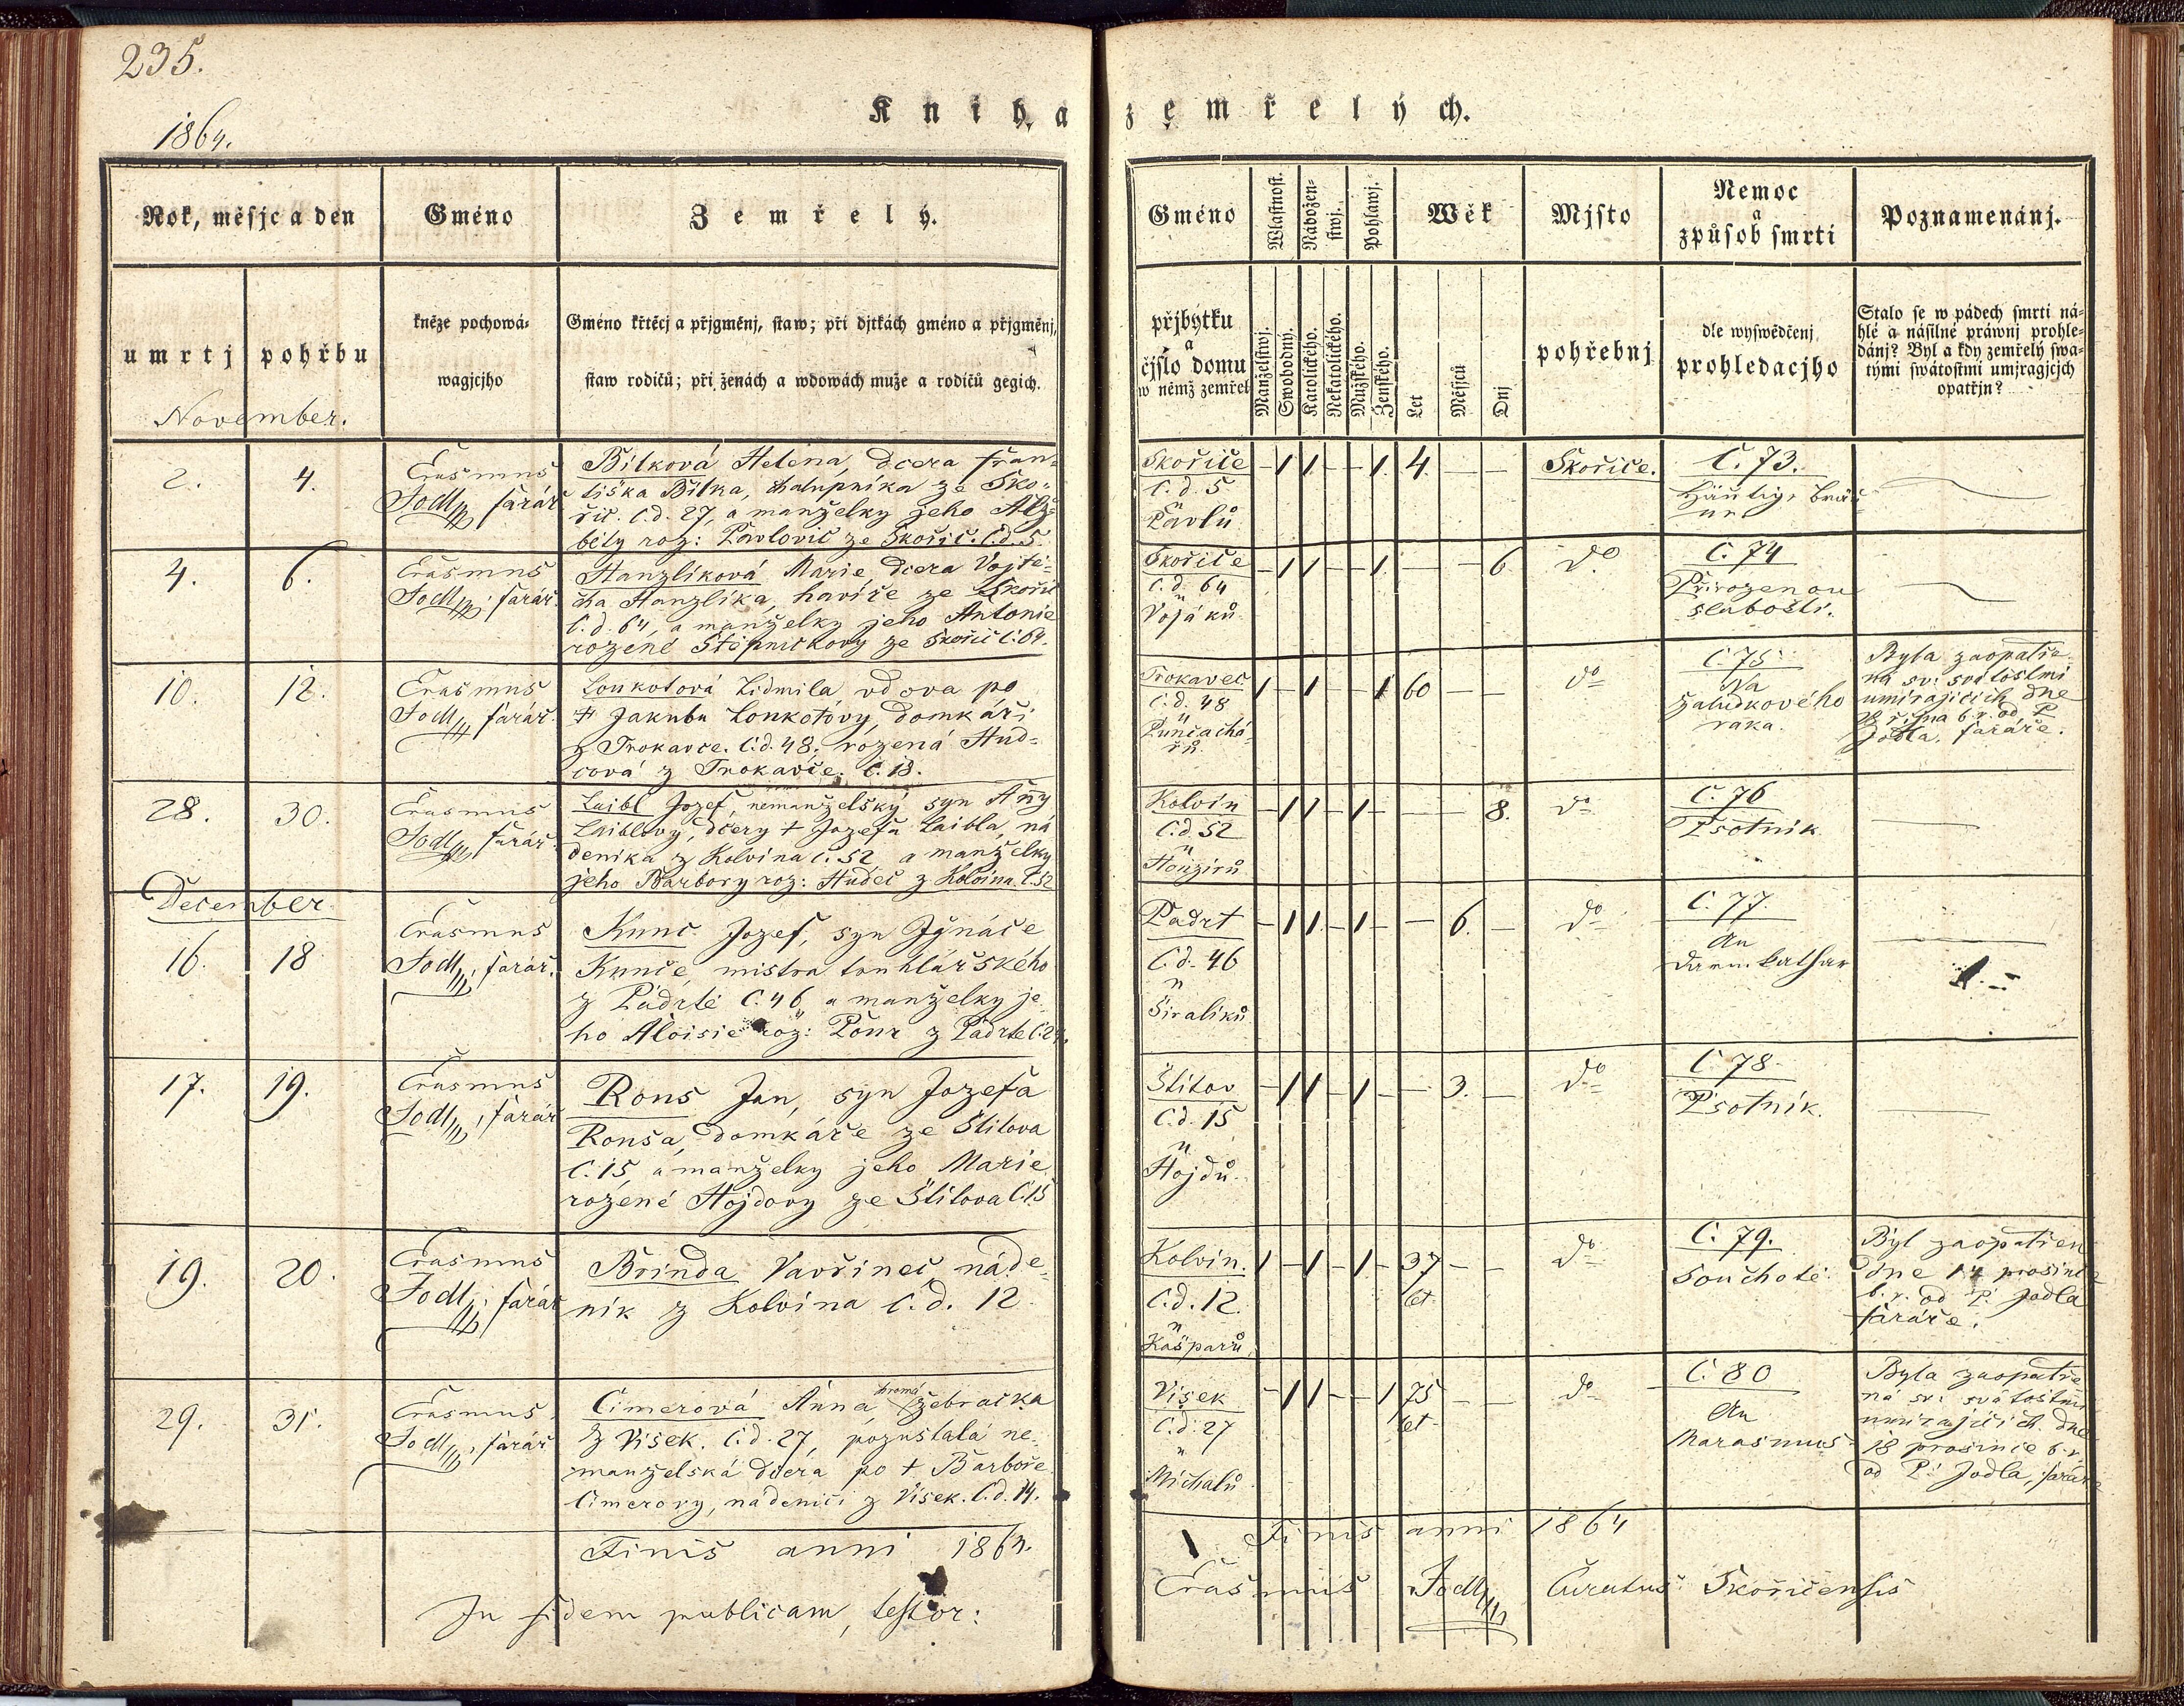 235.
1864.
Kniha zemřelých.
Rok, měsjc a den
Gméno
Zemřelý.
Gméno
Wlastnost.
Náboženstwj.
Pohlawj.
Wěk
Mjsto
Nemoc
a
způsob smrti
Poznamenánj.
umrtj
pohřbu
kněze pochowá-
wagjcjho
Gméno křtěcj a přjgměnj, staw; při djtkách gméno a přjgměnj,
staw rodičů; při ženách a wdowách muže a rodičů gegich.
přjbytku
a
čjslo domu
w němž zemřel
Manželstwj.
Swobodný.
Katolického.
Nekatolického.
Mužského.
Ženského.
Let
Měsjců
Dnj
pohřebnj
dle wyswědčenj
prohledacjho
Stalo se w pádech smrti ná-
hlé a násilné práwnj prohle-
dánj? Byl a kdy zemřelý swa-
tými swátostmi umjragjcjch
opatřjn?
November.
2.
4.
Erasmus
Jodl, farář
Bílková Helena, dcera Fran-
tiška Bílka, chalupníka ze Sko-
řic. č.d. 27, a manželky jeho Alž-
běty roz: Pavlovic ze Skořic. č.d. 5
Skořice
č.d. 5
u
Pavlů
– 1 1 – – 1 4. – –
Skořice.
Č. 73.
Häutige Bräu-
ne
4.
6.
Erasmus
Jodl, farář
Hanzlíková Marie, dcera Vojtě-
cha Hanzlíka, havíře ze Skořic
č.d. 64, a manželky jeho Antonie
rozené Štěpničkovy ze Skořic č. 64.
Skořice
č.d. 64
u
Vojáků
– 1 1 – 1 – – – 6
do
Č. 74
Přirozenou
slabostí.
10.
12.
Erasmus
Jodl, farář.
Loukotová Lidmila vdova po
+ Jakubu Loukotovy, domkáři
z Trokavce. č.d. 48, rozená Hud-
cová z Trokavce. č. 18.
Trokavec
č.d. 48
u
1 – 1 – – 1 60 – –
do
Č. 75
Na
žaludkového
raka.
Byla zaopatře-
ná sv: svátostmi
umírajících dne
října b.r. od P.
Jodla, faráře.
28.
30.
Erasmus
Jodl, farář
Laibl Jozef, nemanželský syn Anny
Laiblovy, dcery + Jozefa Laibla, ná
deníka z Kolvína č. 52, a manželky
jeho Barbory roz: Hudec z Kolvína. č. 52
Kolvín
č.d. 52
u
Houzirů
– 1 1 – 1 – – – 8.
do
Č. 76
Psotník
December
16.
18
Erasmus
Jodl, farář.
Kunc Jozef, syn Ignáce
Kunce, mistra truhlářského
z Padrtě č. 46 a manželky je-
ho Aloisie roz: Pour z Padrtě č. 2
Padrt
č.d. 46
u
Siralíků
– 1 1 – 1 – – 6. –
do
Č. 77.
An
Darm. Cathar
17.
19.
Erasmus
Jodl, farář
Rous Jan, syn Jozefa
Rousa, domkáře ze Štítova
č. 15, a manželky jeho Marie
rozené Hojdovy ze Štítova č. 15
Štítov
č.d. 15
u
Hojdů.
– 1 1 – 1 – – 3. –
do
Č. 78.
Psotník.
19.
20.
Erasmus
Jodl, farář
Brinda Vavřinec náde-
ník z Kolvína č.d. 12
Kolvín.
č.d. 12.
u
Kašparů
1 – 1 – 1 – 37 – –
let
do
Č. 79.
Souchotě.
Byl zaopatřen
dne 14 prosince
b.r. od P. Jodla
faráře.
29.
31.
Erasmus
Jodl, farář
Cimerová Anna, chromá žebračka
z Vísek. č.d. 27, pozustalá ne-
manželská dcera po + Barboře
Cimerovy, nádenici z Vísek. č.d. 14.
Vísek
č.d. 27
u
Michalů
– 1 1 – – 1 75 – –
let
do
Č. 80
An
Marasmus
Byla zaopatře-
ná sv: svátostmi
umírajících dne
18 prosince b.r.
od P. Jodla, faráře
Finis anni 1864.
Finis anni 1864
In fidem publicam, testor:
Erasmus Jodl, Curatus Skořicensis